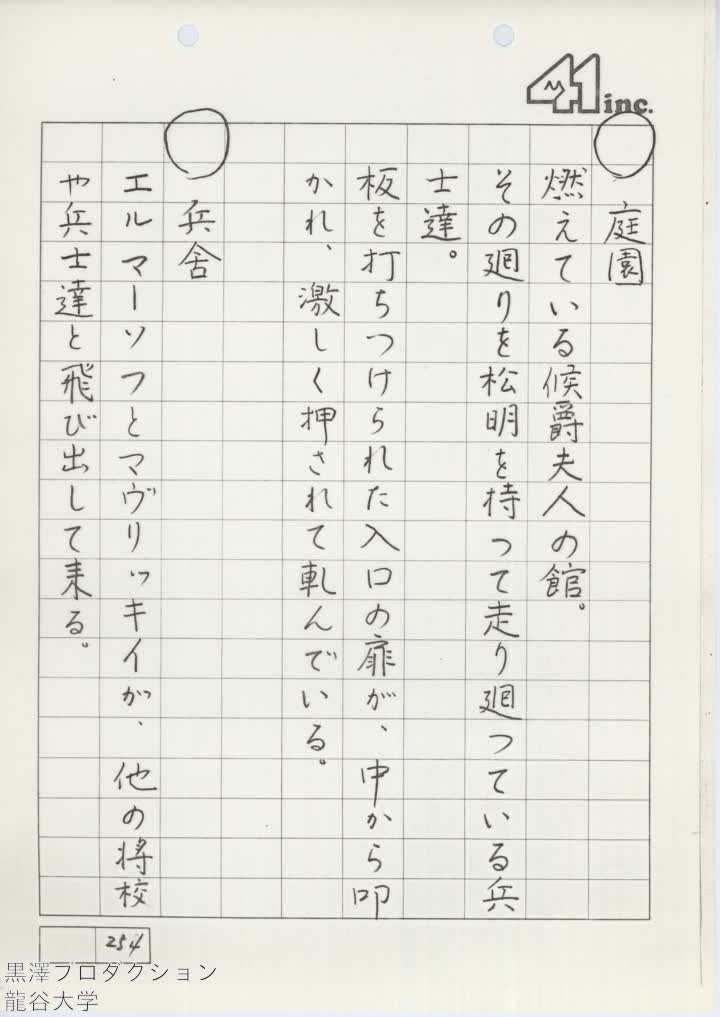 41 inc.
○庭園
燃えている候爵夫人の館。
その廻りを松明を持つて走り廻つている兵
士達。
板を打ちつけられた入口の扉が、中から叩
かれ、激しく押されて軋んでいる。
○兵舎
エルマーソフとマヴリッキイが、他の将校
や兵士達と飛び出して来る。
254
黒澤プロダクション
龍谷大学